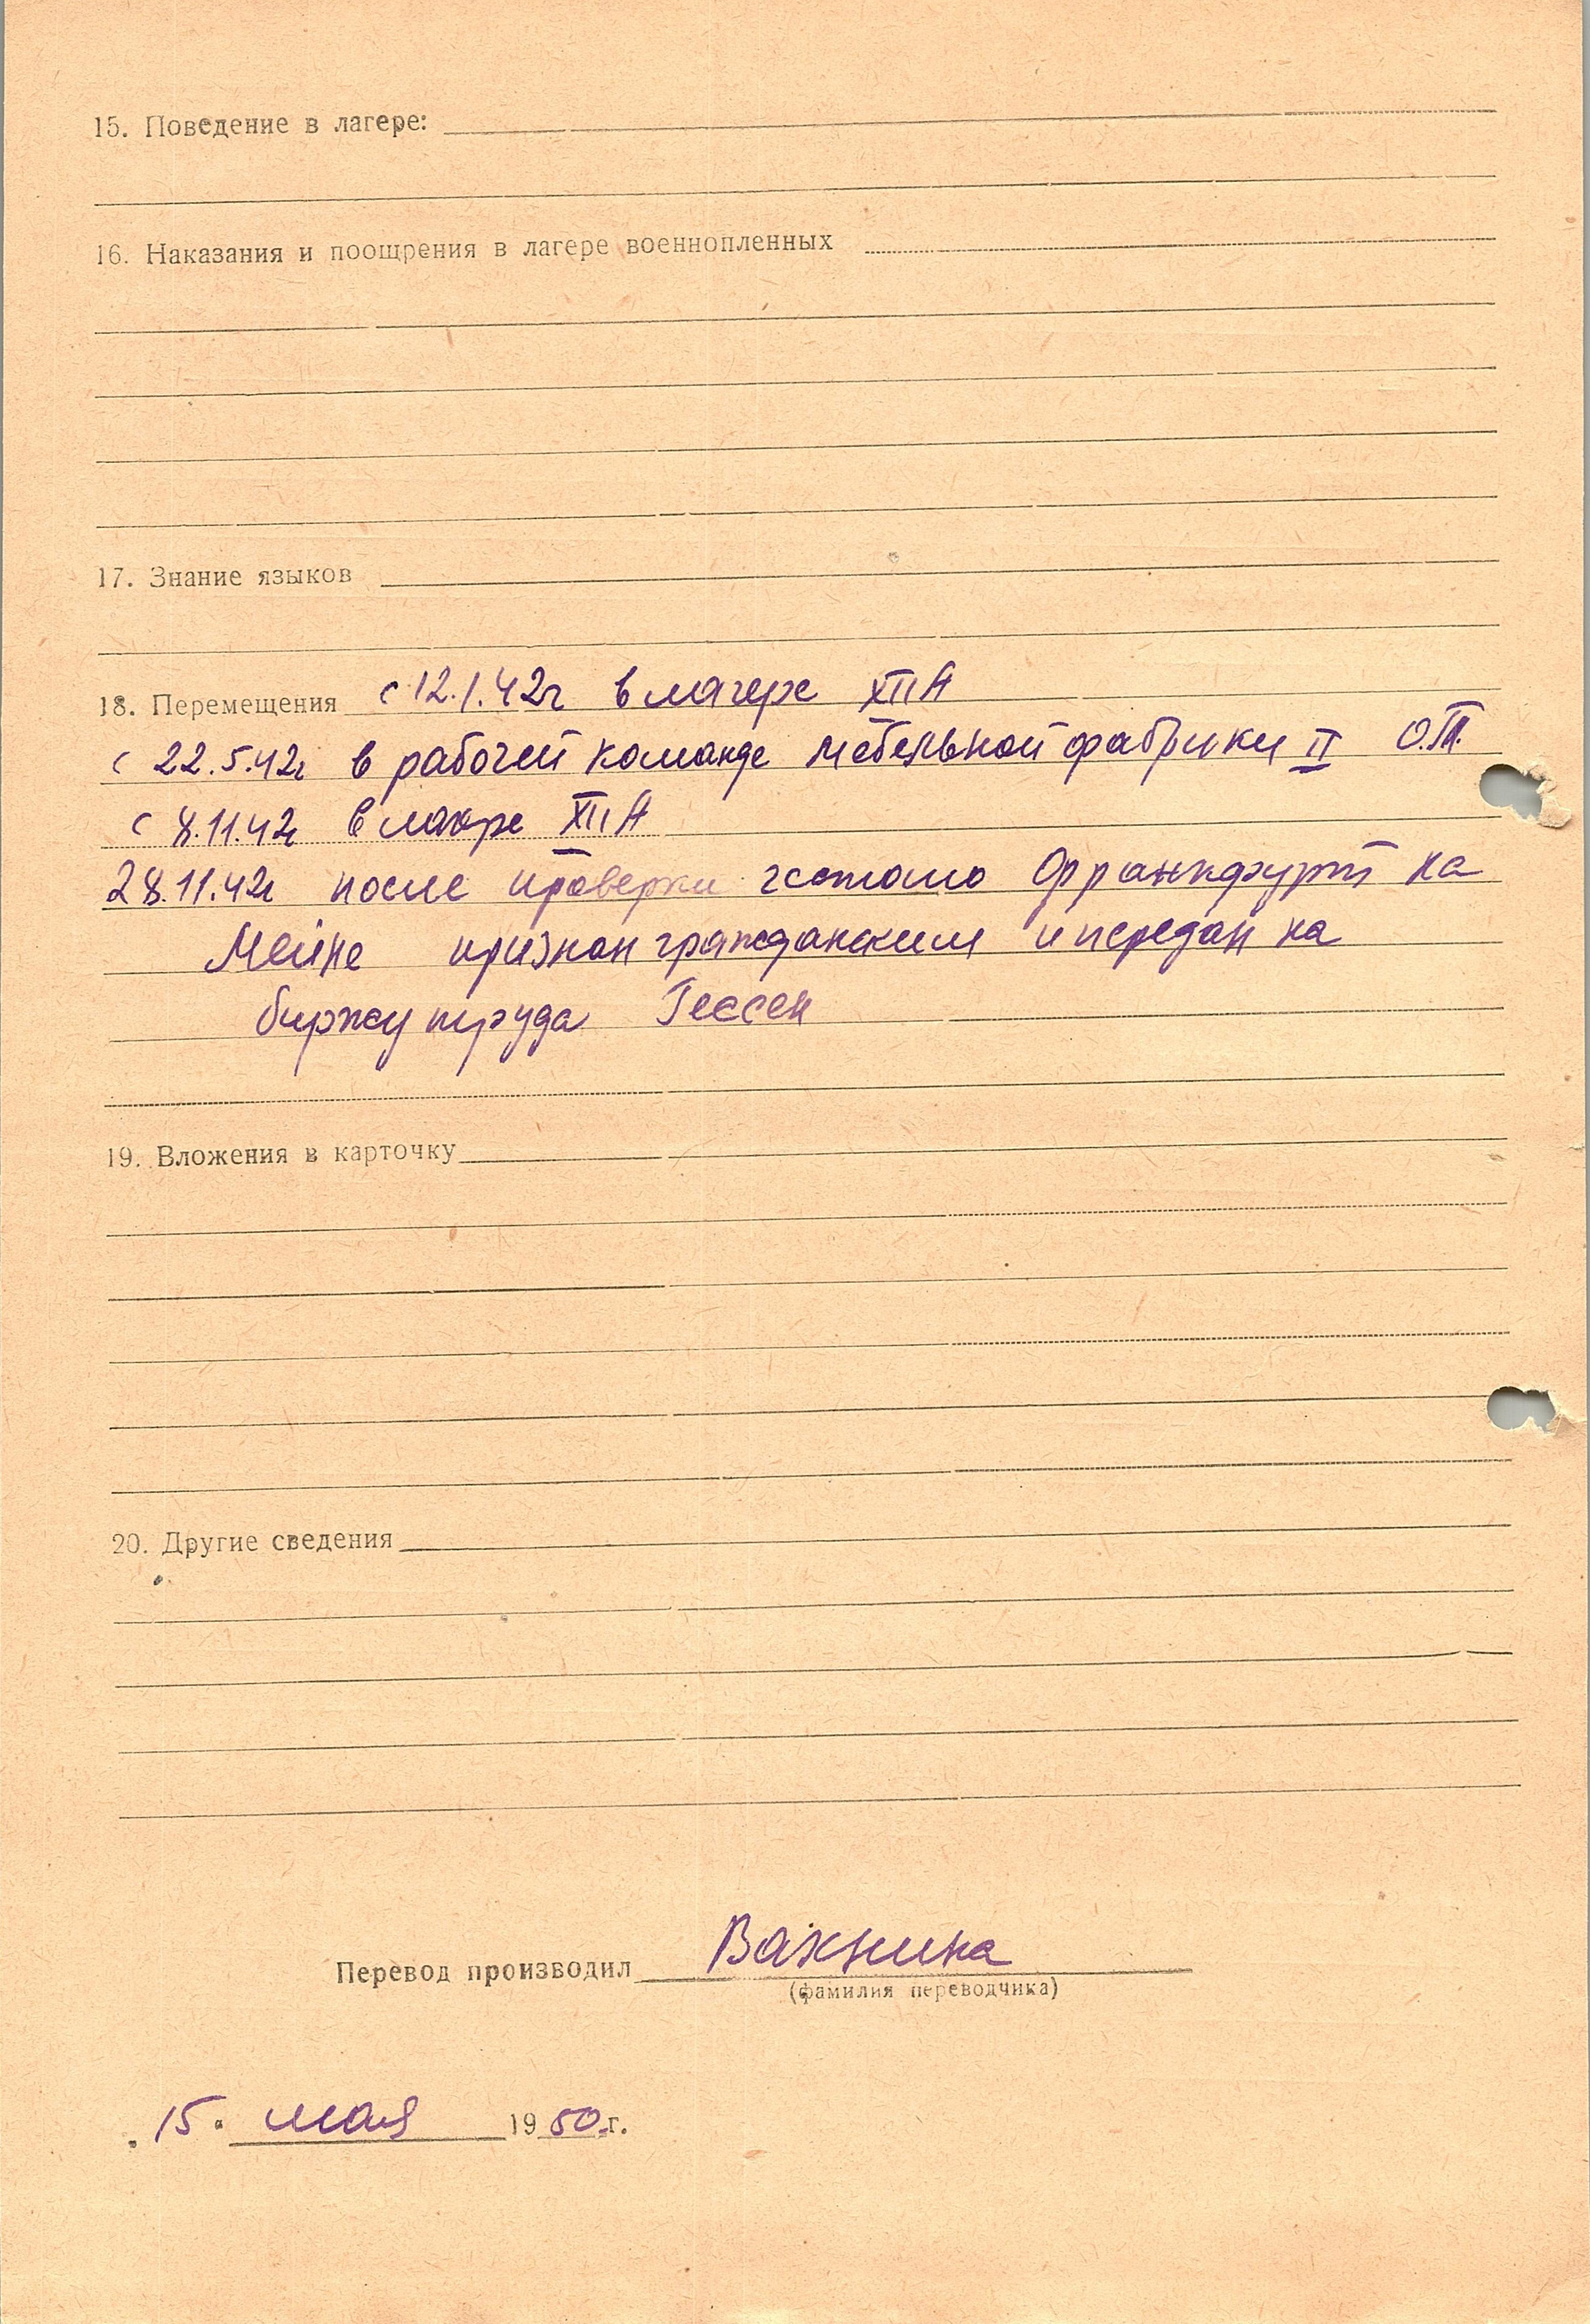 15. Поведение в лагере:
16. Наказания и поощрения в лагере военнопленных
17. Знание языков
18. Перемещения с 12.1.42г в лагере XII А
с 22.5.42г в рабочей команде мебельной фабрики II О.Т.
с 8.11.42г в лагере XII А
28.11.42г после проверки гестапо Франкфурт на
Майне признан гражданским и передан на
биржу труда Гессен
19. Вложения в карточку
20. Другие сведения
Перевод производил Вахнина
(фамилия переводчика)
„15" мая 1950 г.